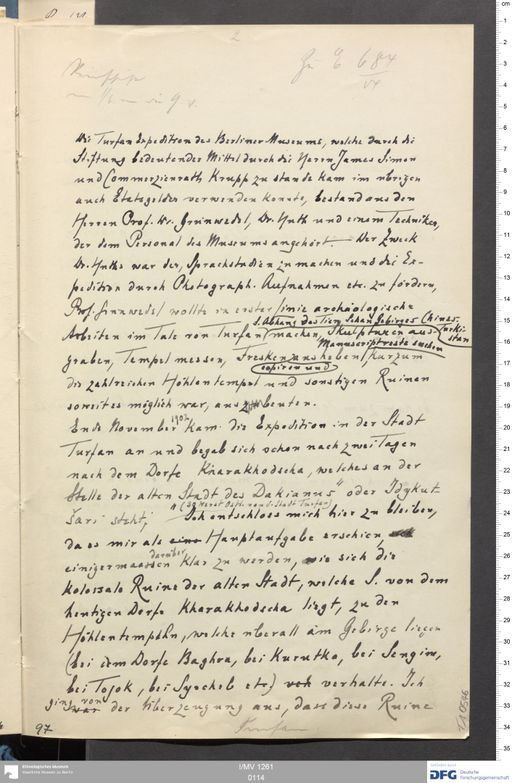 2
Zu E 684
Die Turfan Expedition des Berliner Museums, welche durch die
Stiftung bedeutender Mittel durch die Herrn James Simon
und Commerzienrath Krupp zu stande kam im übrigen
auch Etatsgelder verwenden konnte, bestand aus den
Herren Prof. Dr. Grünwedel, Dr. Huth und einem Techniker,
der dem Personal des Museums angehört. Der Zweck
Dr. Huths war der, Sprachstudien zu machen und die Ex-
pedition durch Photograph. Aufnahmen etc. zu fördern,
Prof. Grünwedel wollte in erster Linie archäologische
S. Abhang des Tien schan Gebirges Chines. Turki-
stan
Arbeiten im Tale von Turfan machen, Skulpturen aus-
Manuscriptreste suchen
graben, Tempel messen, Fresken ausheben, kurzum
copiren und
die zahlreichen Höhlentempel und sonstigen Ruinen
soweit es möglich war, ausbeuten.
1902
Ende November kam die Expedition in der Stadt
Turfan an und begab sich schon nach zwei Tagen
nach dem Dorfe Kharakhodscha, welches an der
Stelle der alten "Stadt des Dakianus" oder Idykut-
Sari steht, Ich entschloss mich hier zu bleiben,
da es mir als eine Hauptaufgabe erschien
darüber
einigermaassen klar zu werden, wie sich die
kolossale Ruine der alten Stadt, welche S. von dem
heutigen Dorfe Kharakhodscha liegt, zu den
Höhlentempeln, welche überall am Gebirge liegen
(bei dem Dorfe Baghra, bei Kurutka, bei Sengim,
bei Tojok, bei Syrcheb etc) verhalte. Ich
ging von
war der Überzeugung aus, dass diese Ruine
97
Turfan
Ethnologisches Museum
Staatliche Museen zu Berlin
I/MV 1261
0114
DFG Deutsche
Forschungsgemeinschaft